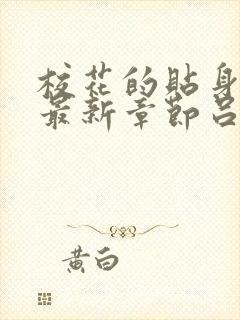 校花的貼身
最新章節呂
黃白